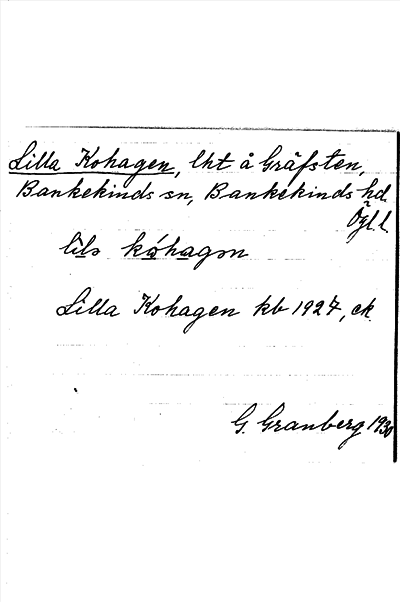 Lilla Kohagen, lht å Gräfsten,
Bankekinds sn, Bankekinds hd.
Ögl. l.
lilə kóhagən
Lilla Kohagen kb 1927, ek.
G. Granberg 1930